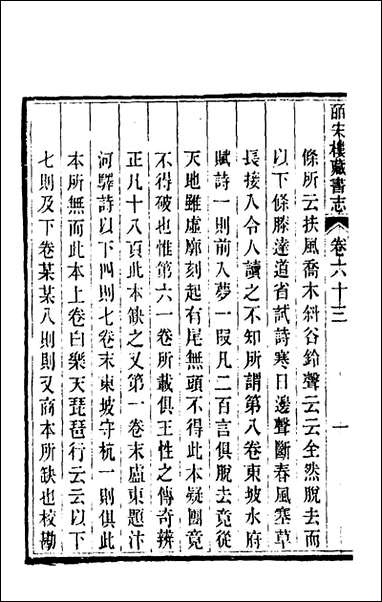 皕宋樓藏書志 卷六十三 一
條所云扶風喬木斜谷鈴聲云云全然脫去而
以下條滕達道省試詩寒日邊聲斷春風塞草
長接入令人讀之不知所謂第八卷東坡水府
賦詩一則前入夢一叚凡二百言俱脫去竟從
天地雖虛廓刻起有尾無頭不得此本疑團竟
不得破也惟第六一卷所載俱王性之傳奇辨
正凡十八頁此本缺之又第一卷末盧東題汴
河驛詩以下四則七卷末東坡守杭一則俱此
本所無而此本上卷白樂天琵琶行云云以下
七則及下卷某某八則則又商本所缺也校勘